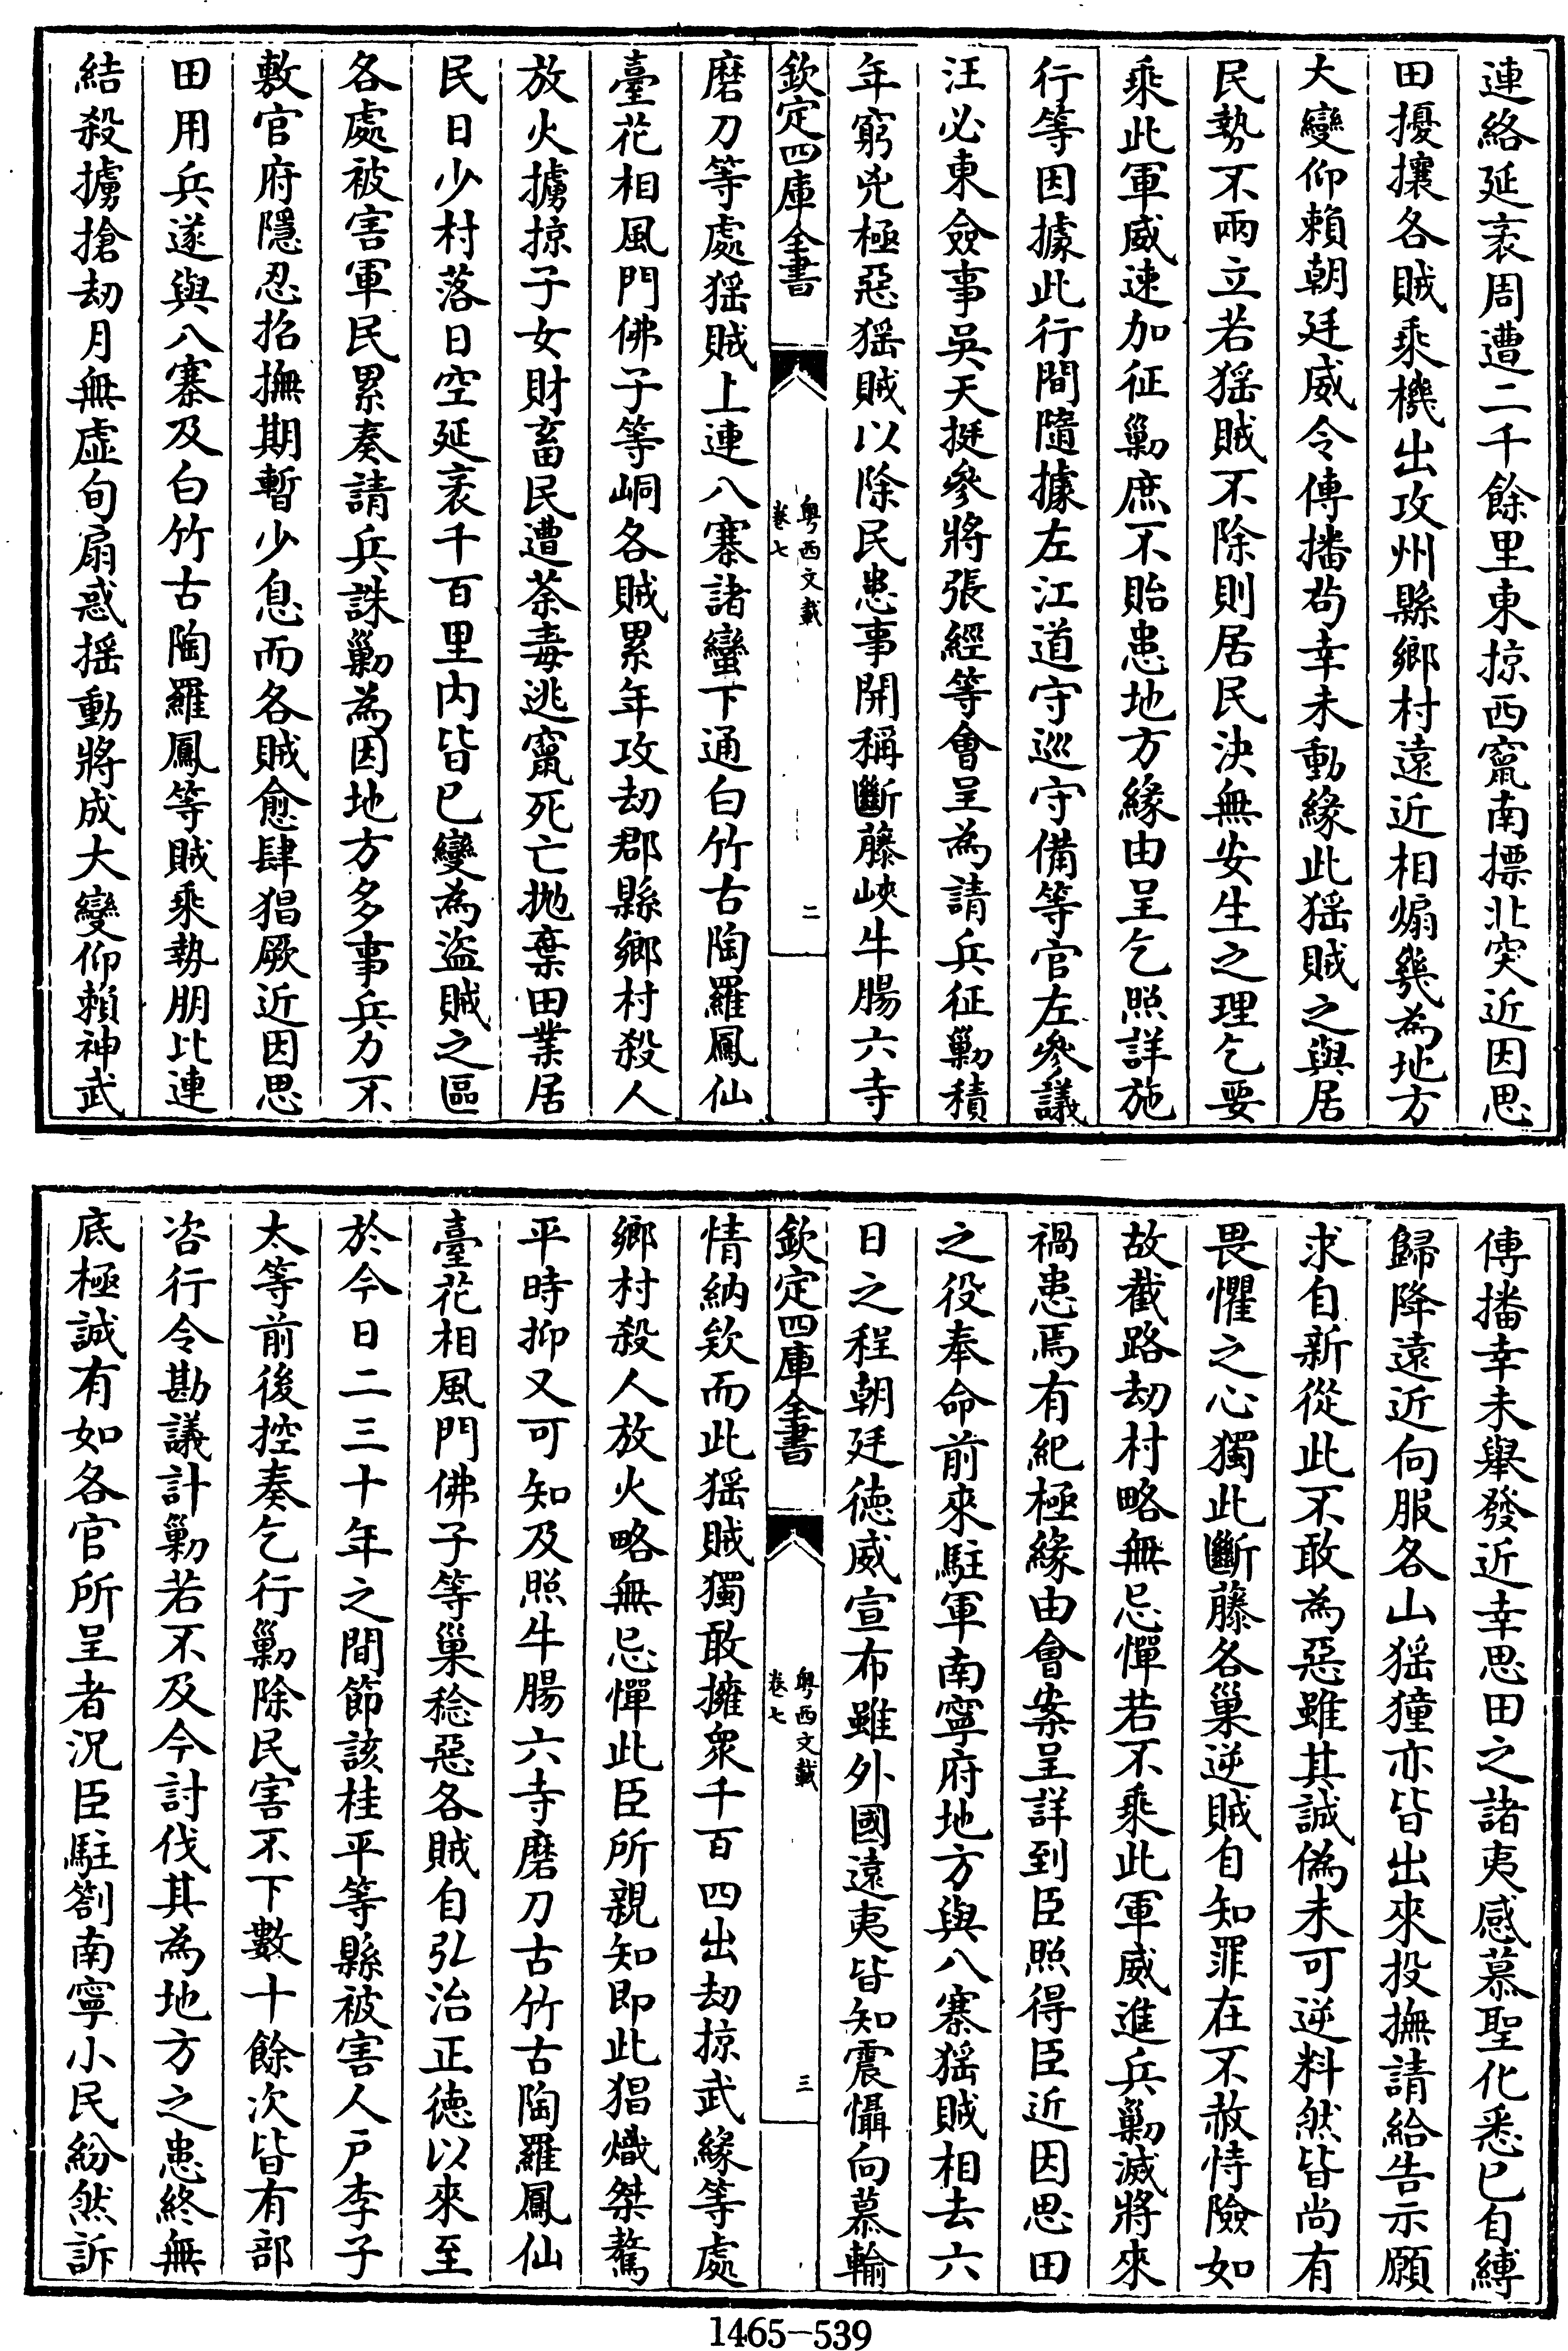 連絡延袤周遭二千餘里東掠西竄南摽北突近因思
田擾攘各賊乘機出攻州縣鄉村遠近相煽幾為地方
大變仰賴朝廷威令傳播苟幸未動緣此猺賊之與居
民勢不兩立若猺賊不除則居民決無安生之理乞要
乘此軍威速加征勦庶不貽患地方緣由呈乞照詳施
行等因據此行間隨據左江道守巡守備等官左參議
汪必東僉事吳天挺參將張經等會呈為請兵征勦積
年窮兇極惡猺賊以除民患事開稱斷藤峽牛腸六寺
欽定四庫全書
粵西文載
卷七
二
磨刀等處猺賊上連八寨諸蠻下通白竹古陶羅鳳仙
臺花相風門佛子等峒各賊累年攻劫郡縣鄉村殺人
放火擄掠子女財畜民遭荼毒逃竄死亡拋棄田業居
民日少村落日空延袤千百里内皆已變為盜賊之區
各處被害軍民累奏請兵誅勦為因地方多事兵力不
敷官府隱忍招撫期暫少息而各賊愈肆猖厥近因思
田用兵遂與八寨及白竹古陶羅鳳等賊乘勢朋比連
結殺擄搶劫月無虛旬扇惑搖動將成大變仰賴神武
傳播幸未舉發近幸思田之諸夷感慕聖化悉已自縛
歸降遠近向服各山猺獞亦皆出來投撫請給告示願
求自新從此不敢為惡雖其誠偽未可逆料然皆尚有
畏懼之心獨此斷藤各巢逆賊自知罪在不赦恃險如
故截路劫村略無忌憚若不乘此軍威進兵勦滅將來
禍患焉有紀極緣由會案呈詳到臣照得臣近因思田
之役奉命前來駐軍南寧府地方與八寨猺賊相去六
日之程朝廷德威宣布雖外國遠夷皆知震懾向慕輸
欽定四庫全書
粵西文載
卷七
三
情納欵而此猺賊獨敢擁衆千百四出劫掠武緣等處
鄉村殺人放火略無忌憚此臣所親知即此猖熾桀驁
平時抑又可知及照牛腸六寺磨刀古竹古陶羅鳳仙
臺花相風門佛子等巢稔惡各賊自弘治正德以來至
於今日二三十年之間節該桂平等縣被害人户李子
太等前後控奏乞行勦除民害不下數十餘次皆有部
咨行令勘議計勦若不及今討伐其為地方之患終無
底極誠有如各官所呈者況臣駐劄南寧小民紛然訴
1465-539